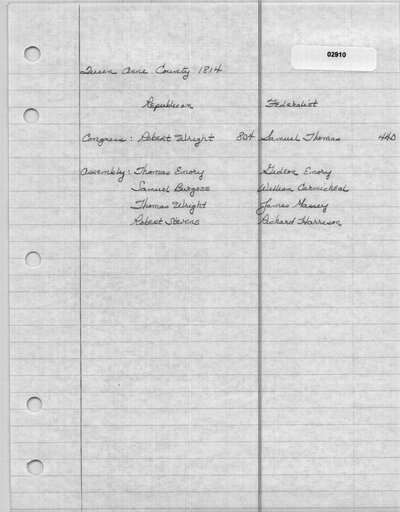 02910
Queen Anne County 1814
Republican Federalist
Congress: Robert Wright 804 Samuel Thomas 440
Assembly: Thomas Emory Gideon Emory
Samuel Burgess William Carmicheal
Thomas Wright James Massey
Robert Stevens Richard Harrison